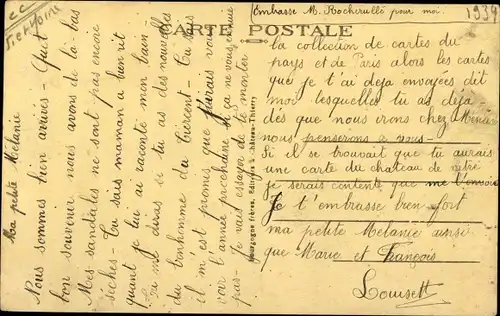 Embrasse M. Rochirullé pour moi.
1934
CARTE POSTALE
Ma petite Mélanie
Nous sommes bien arrivés - Quel
bon souvenir nous avons de là bas
Mes sandales ne sont pas encore
sèches - Tu sais maman a bien rit
quand je lui ai raconté mon bain
Tu me diras si tu as des nouvelles
du bonhomme du - Tu sais
il m'est promis que j'aurais vous
voir l'année prochaine si ça ne vous ennuie
pas - Je vais essayer de le monter
Bourgogne frères, Château-Thierry
la collection de cartes du
pays et de Paris alors les cartes
que je t'ai deja envoyées dit
moi lesquelles tu as déjà
dès que nous irons chez
nous penserons a vous -
Si il se trouvait que tu aurais
une carte du chateau de
je serais contente que me l'envoie
Je t'embrasse bien fort
ma petite Melanie ainsi
que Marie et François
Louisett